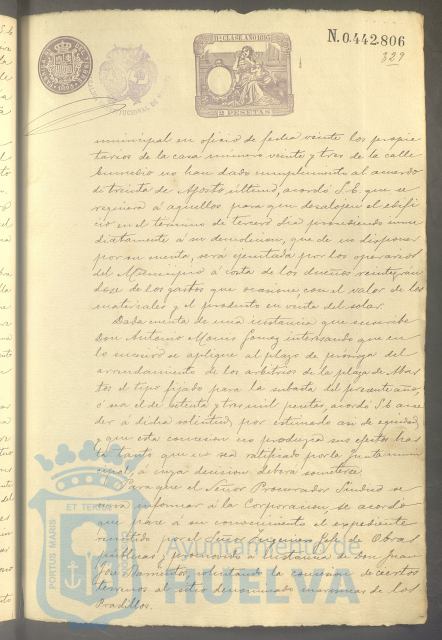 11ª CLASE AÑO 1895
N.0.442.806
329
2 PESETAS
municipal en oficio de fecha veinte los propie
tarios de la casa número veinte y tres de la calle
no han dado cumplimiento al acuerdo
de treinta de Agosto último, acordó S.E. que se
requiera á aquellos para que desalojen el edifi
cio en el término de tercero dia procediendo inme
diatamente á su demolicion, que de no disponer
por su cuenta, será ejecutada por los operarios
del Municipio á costa de los dueños reintegrán
dose de los gastos que ocasione, con el valor de los
materiales y el producto en venta del solar.
Dada cuenta de una instancia que suscribe
Don Antonio interesando que en
lo sucesivo se aplique al plazo de próroga del
arrendamiento de los arbitrios de la plaza de Abas
tos el tipo fijado para la subasta del presente año,
ó sea el de setenta y tres mil pesetas, acordó S.E. acce
der á dicha solicitud, por estimarlo así de equidad,
y que esta concesion no produzca sus efectos has
ta tanto que no sea ratificado por la Junta muni
cipal, á cuya decision deberá someterse.
Para que el Señor Procurador Síndico se
sirva informar á la Corporacion, se acordó
que pase á su conocimiento el expediente
remitido por el Señor Ingeniero Jefe de Obras
públicas, promovido á instancia de don Juan
José solicitando la concesion de ciertos
terrenos al sitio denominado marismas de los
Pradillos.
PORTUS MARIS
ET TERRAE
Ayuntamiento de
HUELVA